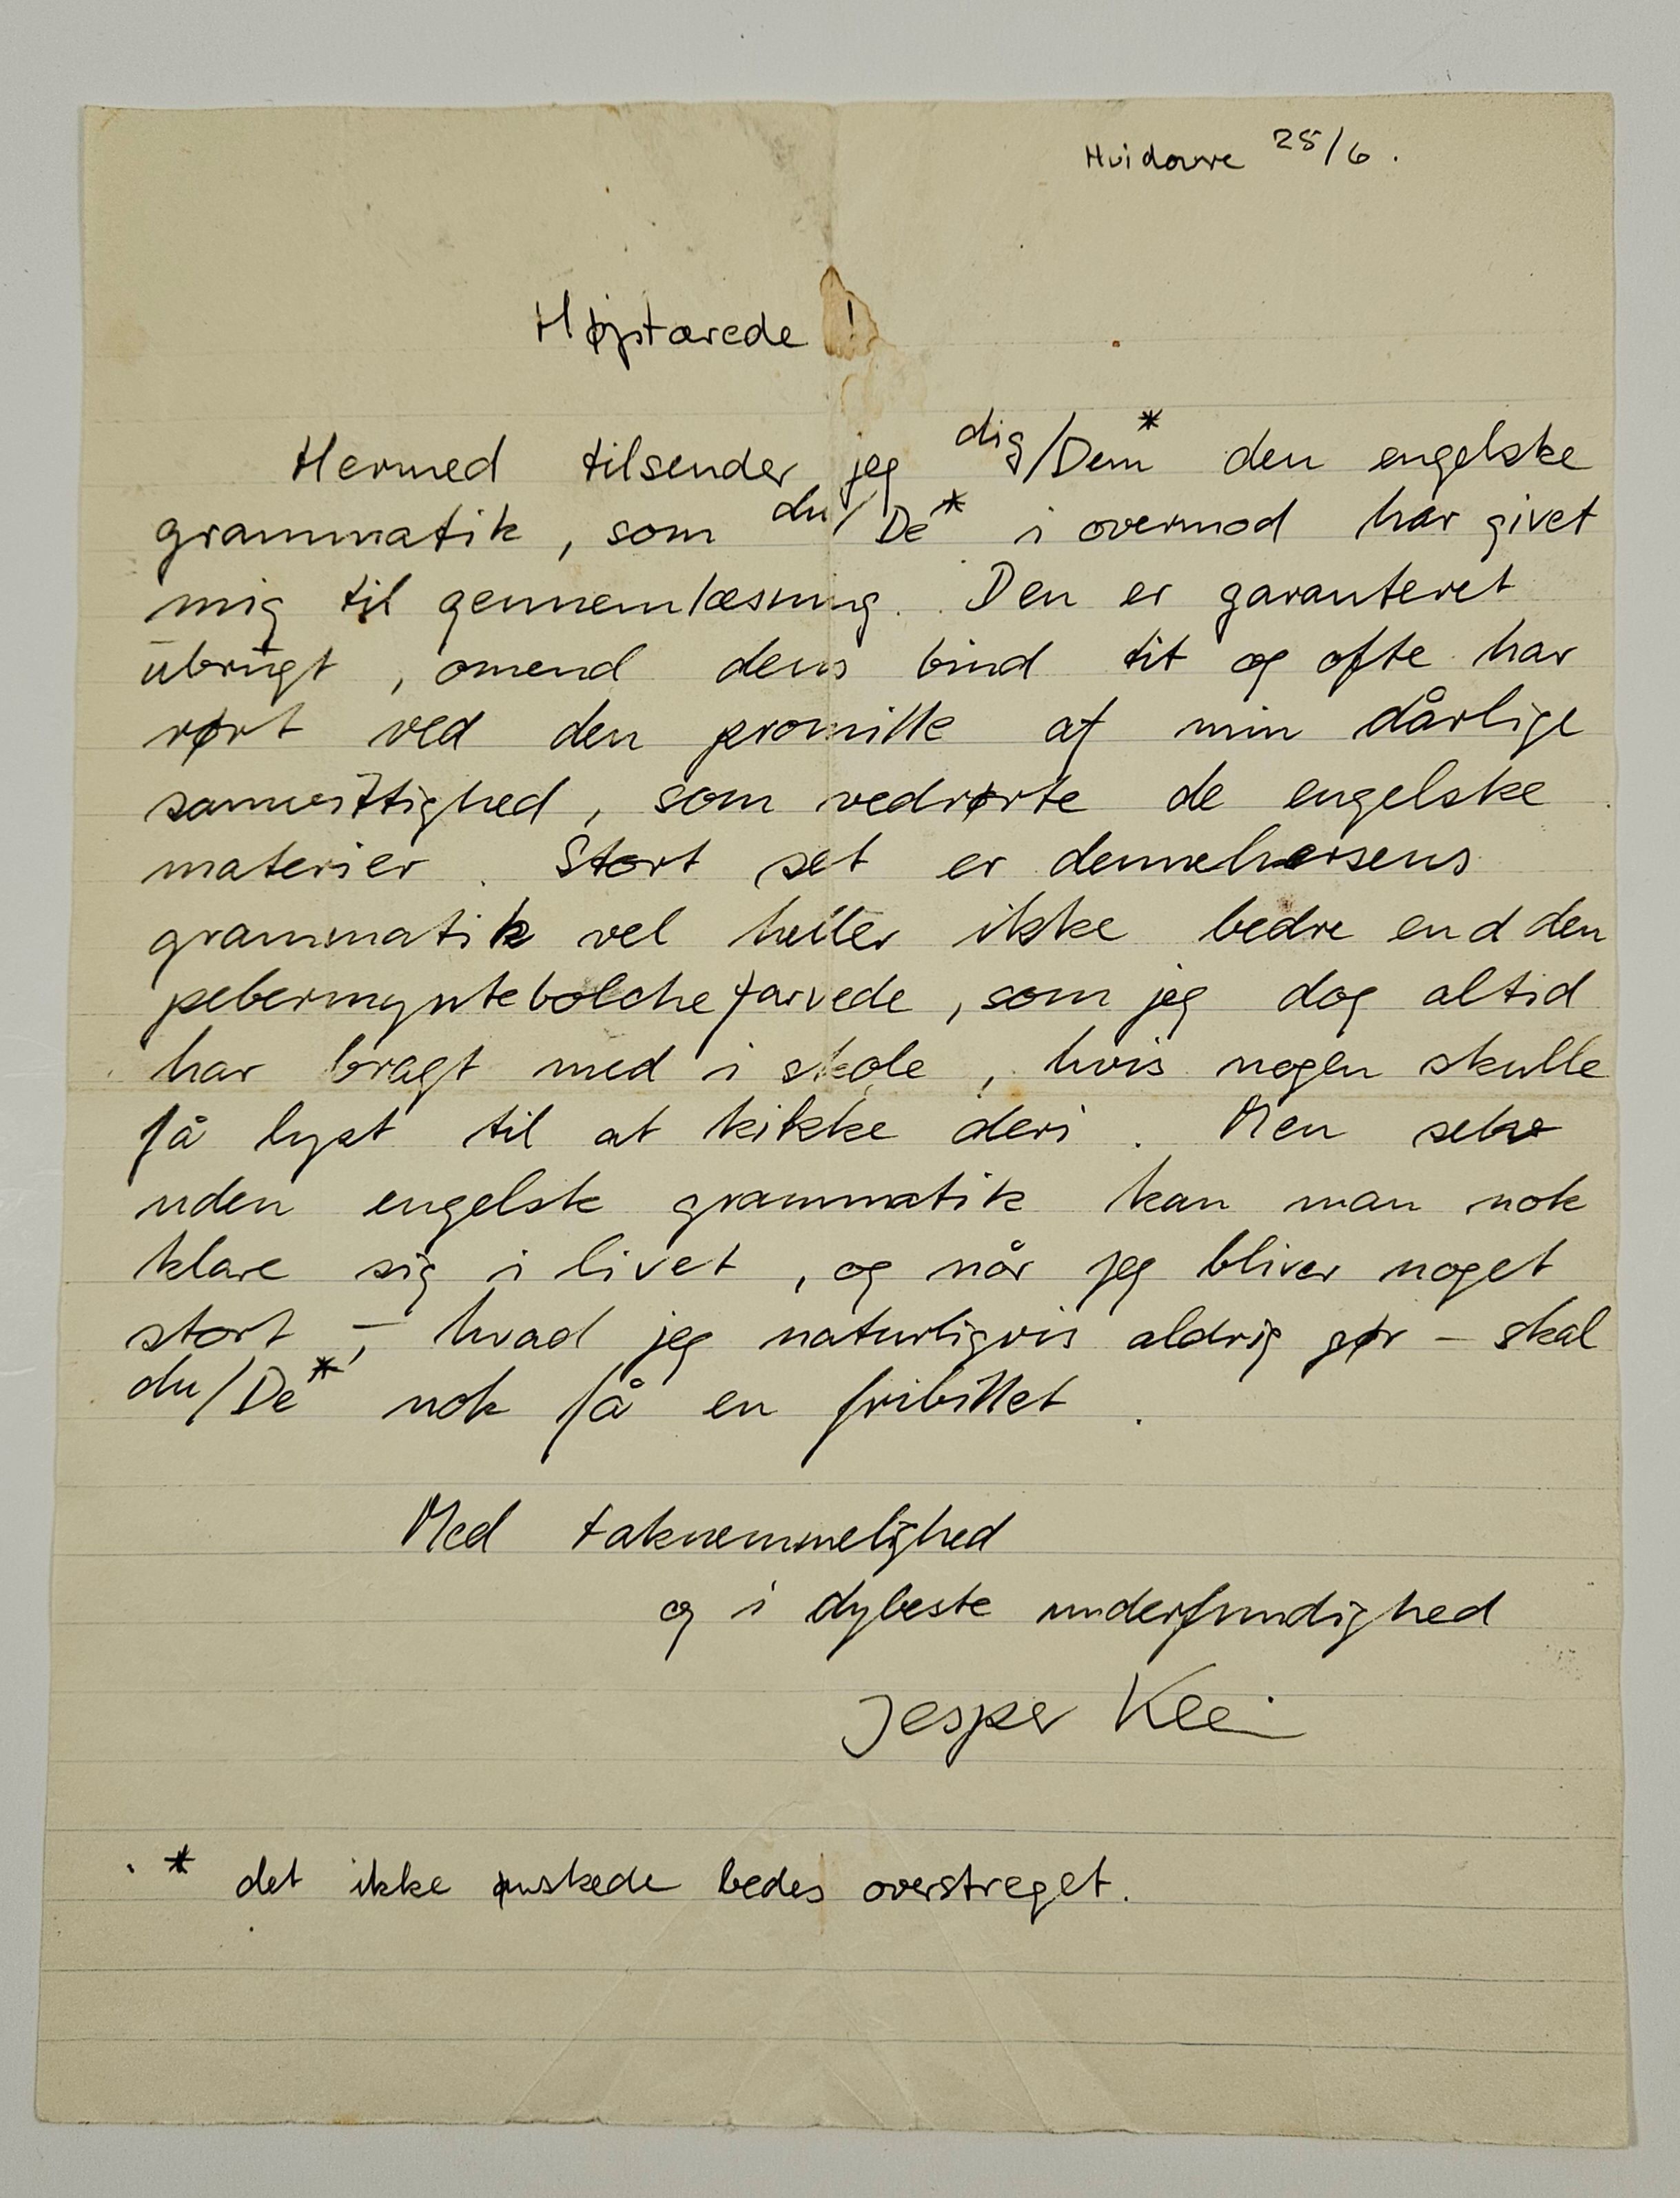 Hvidovre 25/6.
Højstærede !
Hermed tilsender jeg dig/Dem* den engelske
grammatik, som du/De* i overmod har givet
mig til gennemlæsning. Den er garanteret
übrügt, omend dens bind tit og ofte har
rørt ved den promille af min dårlige
samvittighed, som vedrørte de engelske
materier. Stort set er dennehersens
grammatik vel heller ikke bedre end den
pebermyntebolchefarvede, som jeg dog altid
har bragt med i skole, hvis nogen skulle
få lyst til at kikke deri. Men selv
uden engelsk grammatik kan man nok
klare sig i livet, og når jeg bliver noget
stort, – hvad jeg naturligvis aldrig gør – skal
du/De* nok få en fribillet.
Med taknemmelighed
og i dybeste underfundighed
Jesper Klein
* det ikke ønskede bedes overstreget.